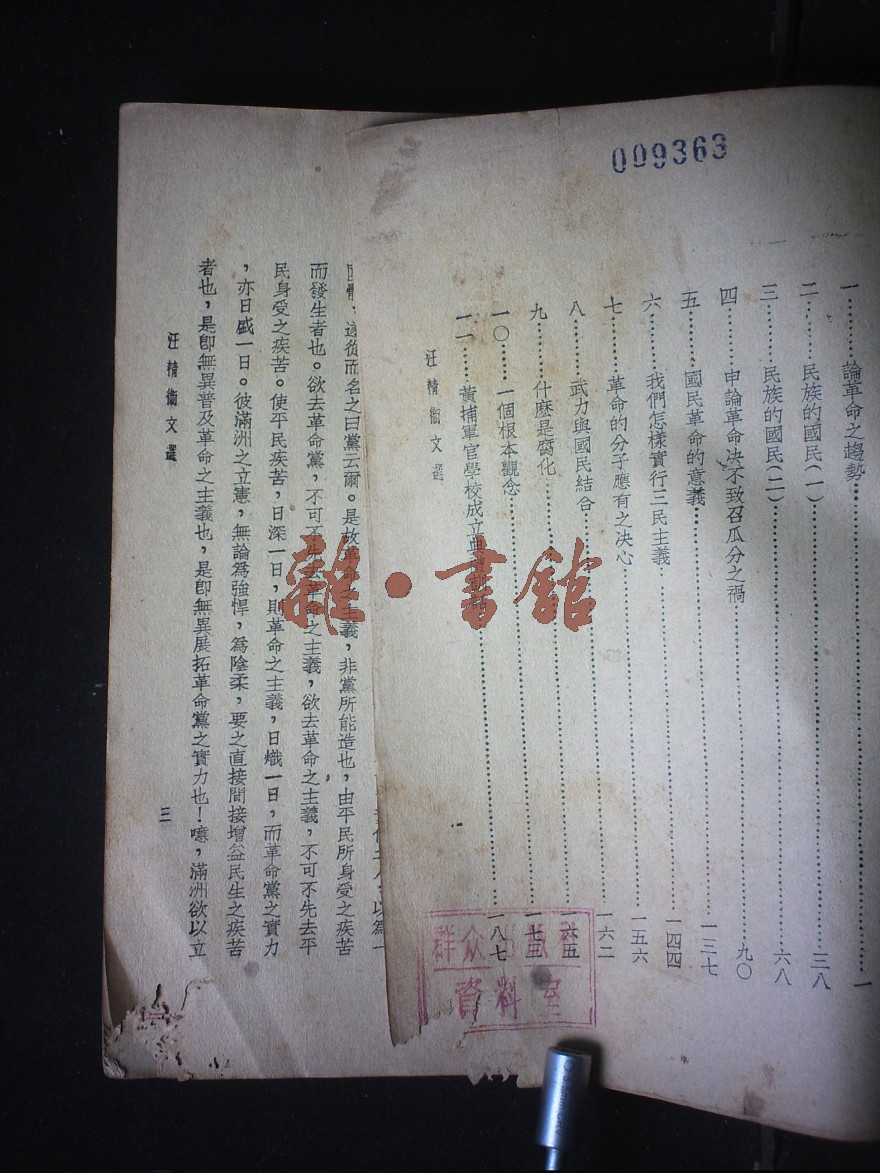 009363
一………論革命之趨勢………一
二………民族的國民(一)………三八
三………民族的國民(二)………六八
四………申論革命决不致召瓜分之禍………九〇
五………國民革命的意義………一三七
六………我們怎樣實行三民主義………一四四
七………革命的分子應有之决心………一五六
八………武力與國民結合………一六二
九………什麽是腐化………一六五
一〇………一個根本觀念………一七五
一一………黃埔軍官學校成立典禮訓詞………一八七
汪精衞文選
群众出版社
資料室
雜·書館
遂從而名之曰黨云爾。是故革命之主義，非黨所能造也，由平民所身受之疾苦
而發生者也。欲去革命黨，不可不先去革命之主義，欲去革命之主義，不可不先去平
民身受之疾苦。使平民疾苦，日深一日，則革命之主義，日熾一日，而革命黨之實力
，亦日盛一日。彼滿洲之立憲，無論爲強悍，爲陰柔，要之直接間接增益民生之疾苦
者也，是卽無異普及革命之主義也，是卽無異展拓革命黨之實力也！噫，滿洲欲以立
汪精衞文選
三